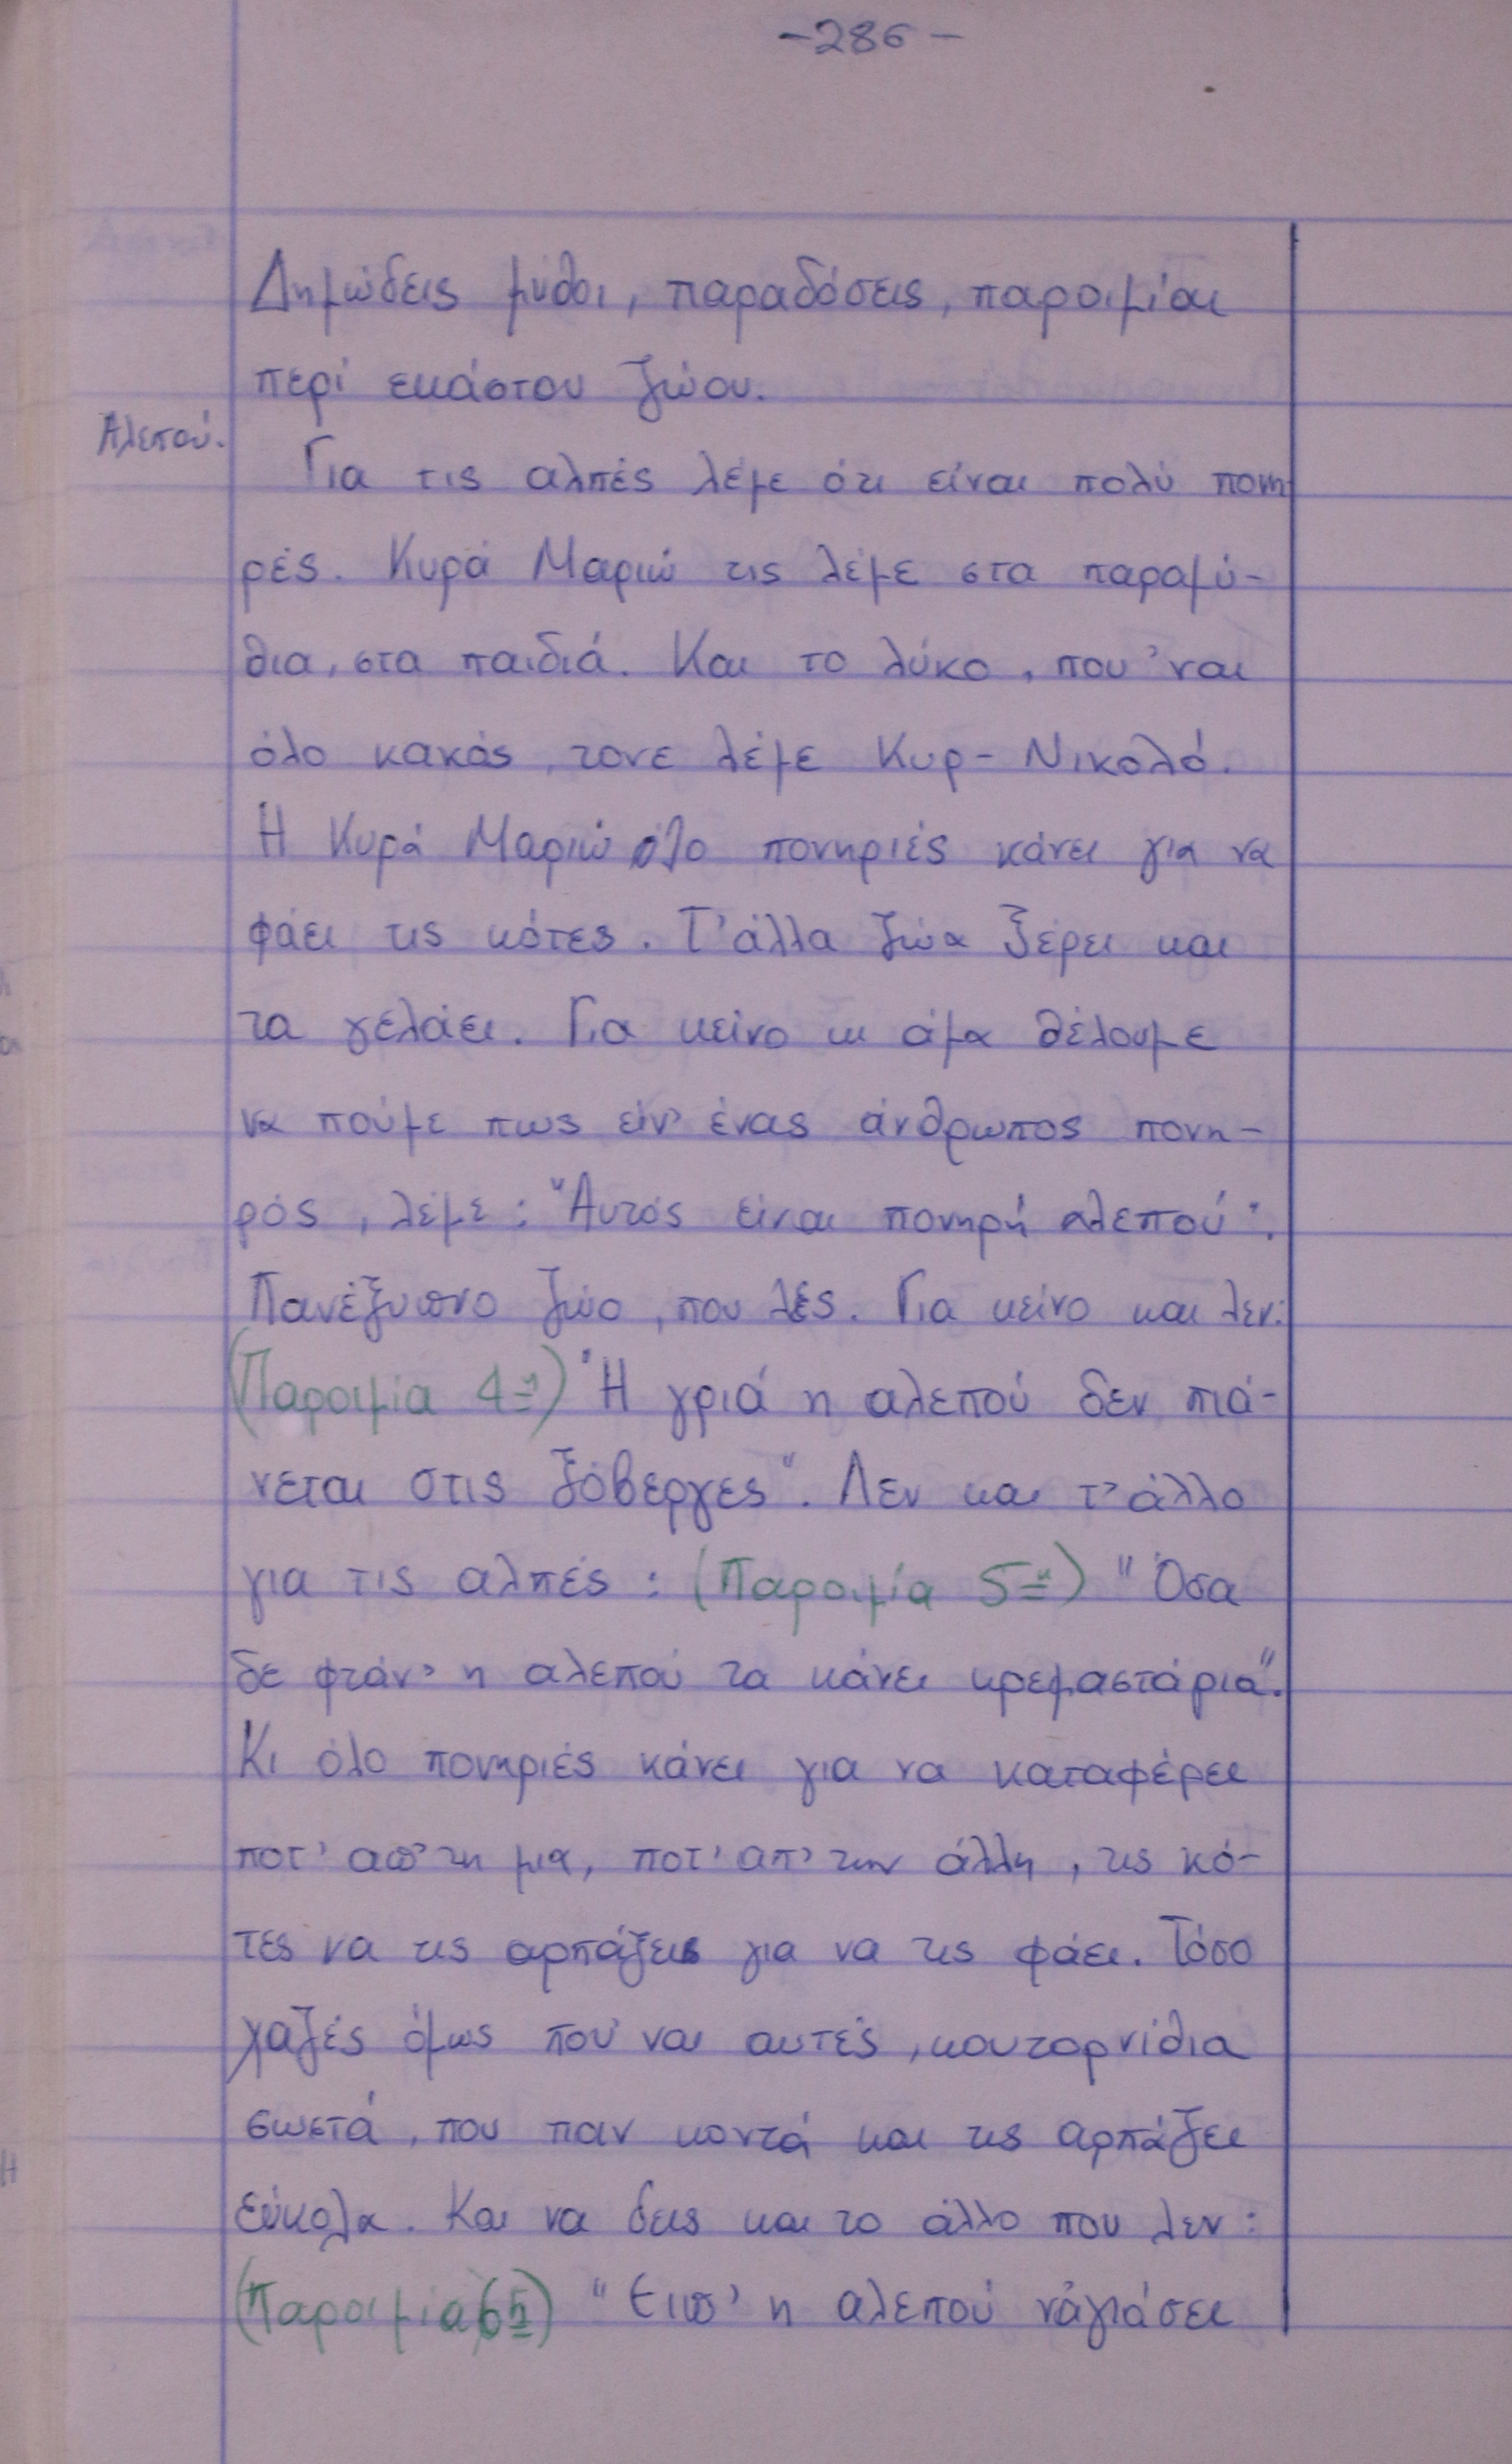 -286-
Δημώδεις μύθοι, παραδόσεις, παροιμίαι
περί εκάστου ζώου.
Αλεπού.
Για τις αλπές λέμε ότι είναι πολύ πονη-
ρές. Κυρά Μαριώ τις λέμε στα παραμύ-
θια, στα παιδιά. Και το λύκο, που 'ναι
όλο κακός, τονε λέμε Κυρ-Νικολό.
Η Κυρά Μαριώ όλο πονηριές κάνει για να
φάει τις κότες. Τ' άλλα ζώα ξέρει και
τα γελάει. Για κείνο κι άμα θέλουμε
να πούμε πως είν' ένας άνθρωπος πονη-
ρός, λέμε: "Αυτός είναι πονηρή αλεπού".
Πανέξυπνο ζώο, που λές. Για κείνο και λεν:
(Παροιμία 4η) "Η γριά η αλεπού δεν πιά-
νεται στις ξόβεργες". Λεν και τ' άλλο
για τις αλπές: (Παροιμία 5η) "Όσα
δε φτάν' η αλεπού τα κάνει κρεμαστάρια".
Κι όλο πονηριές κάνει για να καταφέρει
ποτ' απ' τη μια, ποτ' απ' την άλλη, τις κό-
τες να τις αρπάξει για να τις φάει. Τόσο
χαζές όμως που 'ναι αυτές, κουτορνίθια
σωστά, που παν κοντά και τις αρπάζει
εύκολα. Και να δεις και το άλλο που λεν:
(Παροιμία 6η) "Είπ' η αλεπού ν' αγιάσει